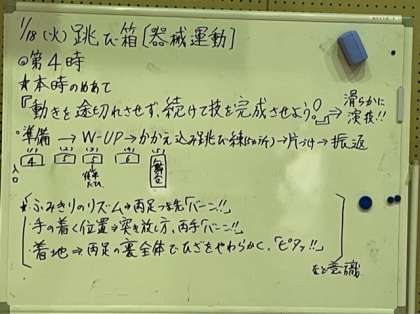 1/18(火) 跳び箱〔器械運動〕
◎第4時
★本時のめあて
『動きを途切れさせず、続けて技を完成させよう!!』→滑らかに演技!!
。準備→W-UP→かかえ込み跳び練(5か所)→片づけ→振返
(1) (2) (3) (4) (5)
入口 4 5 5 6 舞台
★ふみきりのリズム→両足つま先「バーン!!」
・手の着く位置⇒突き放し方、両手「バーン!!」
・着地⇒両足の裏全体でひざをやわらかく、「ピタッ!!」
など意識